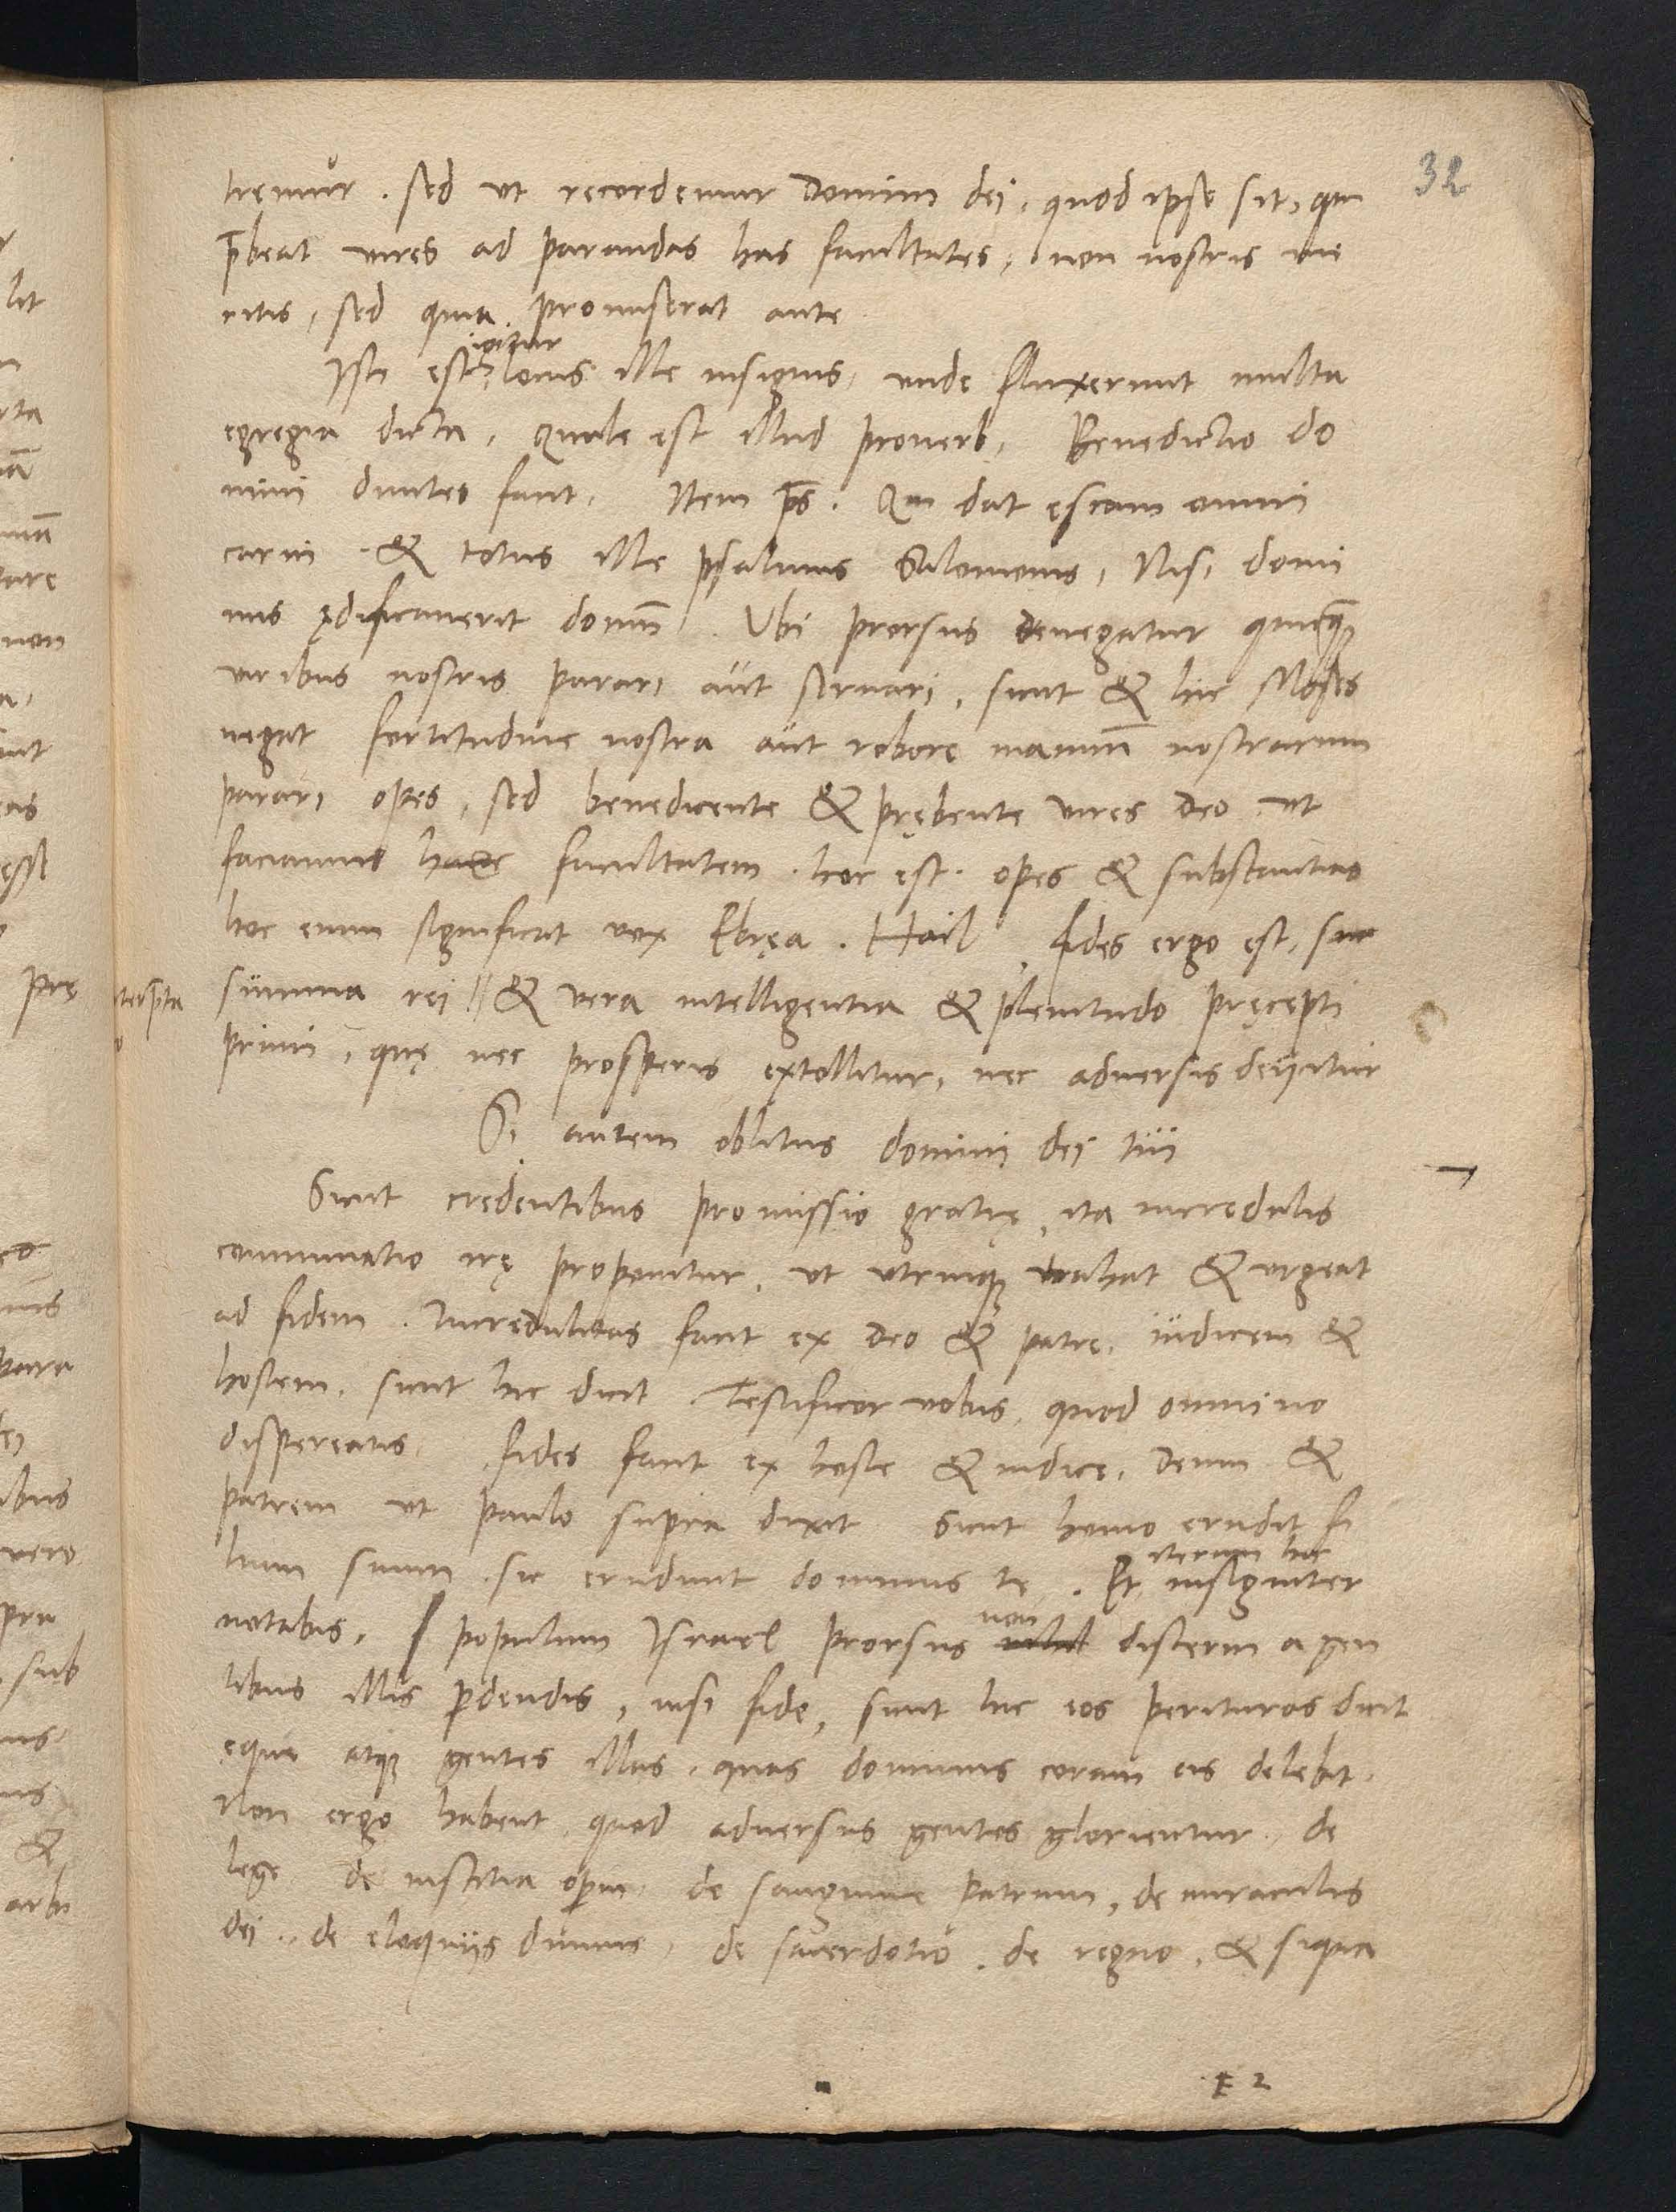 32
tremur . sed vt recordemur domini dei, quod ipse sit, qui
p̄beat vires ad parandas has facultates, non nostris me
ritis, sed quia promiserat ante
igitur
Iste est locus ille insignis, vnde fluxerunt multa
egregia dicta, Quale est illud prouerb, Benedictio do
mini diuites facit, Item ps̄. Qui dat escam omni
carni . & totus ille psalmus Salomonis, Nisi domi
nus ędificauerit domū . Vbi prorsus denegatur quicq̄
viribus nostris parari aut seruari, sicut & hic Moses
negat fortitudine nostra aut robore manuū nostrarum
parari opes, sed benedicente & prębente vires deo vt
faciamus hanc facultatem . hoc est . opes & substantias
hoc enim significat vox Ebręa . Hail , fides ergo est, sum
summa rei // & vera intelligentia & plenitudo pręcepti
primi, quę nec prosperis extollitur, nec aduersis deijcitur
Si autem oblitus domini dei tui
Sicut credentibus promissio gratię, ita incredulis
comminatio irę proponitur, vt vtrinq; trahat & vrgeat
ad fidem . Incredulitas facit ex deo & patre, iudicem &
hostem, sicut hic dicit Testificor vobis, quod omnino
dispereatis, fides facit ex hoste & iudice, deum &
patrem vt paulo supra dixit Sicut homo erudit fi
lium suum, sic erudiuit dominus te . Et iterum hic insigniter
notabis, populum Israel prorsus non nihil discerni a gen
tibus illis p̄dendis, nisi fide, sicut hic eos perituros dicit
ęque atq; gentes illas, quas dominus coram eis delebit.
Non ergo habent quod aduersus gentes glorientur, de
lege de iustitia operū de sanguine patrum, de miraculis
dei, de eloquijs diuinis, de sacerdotio, de regno, & siqua
E 2